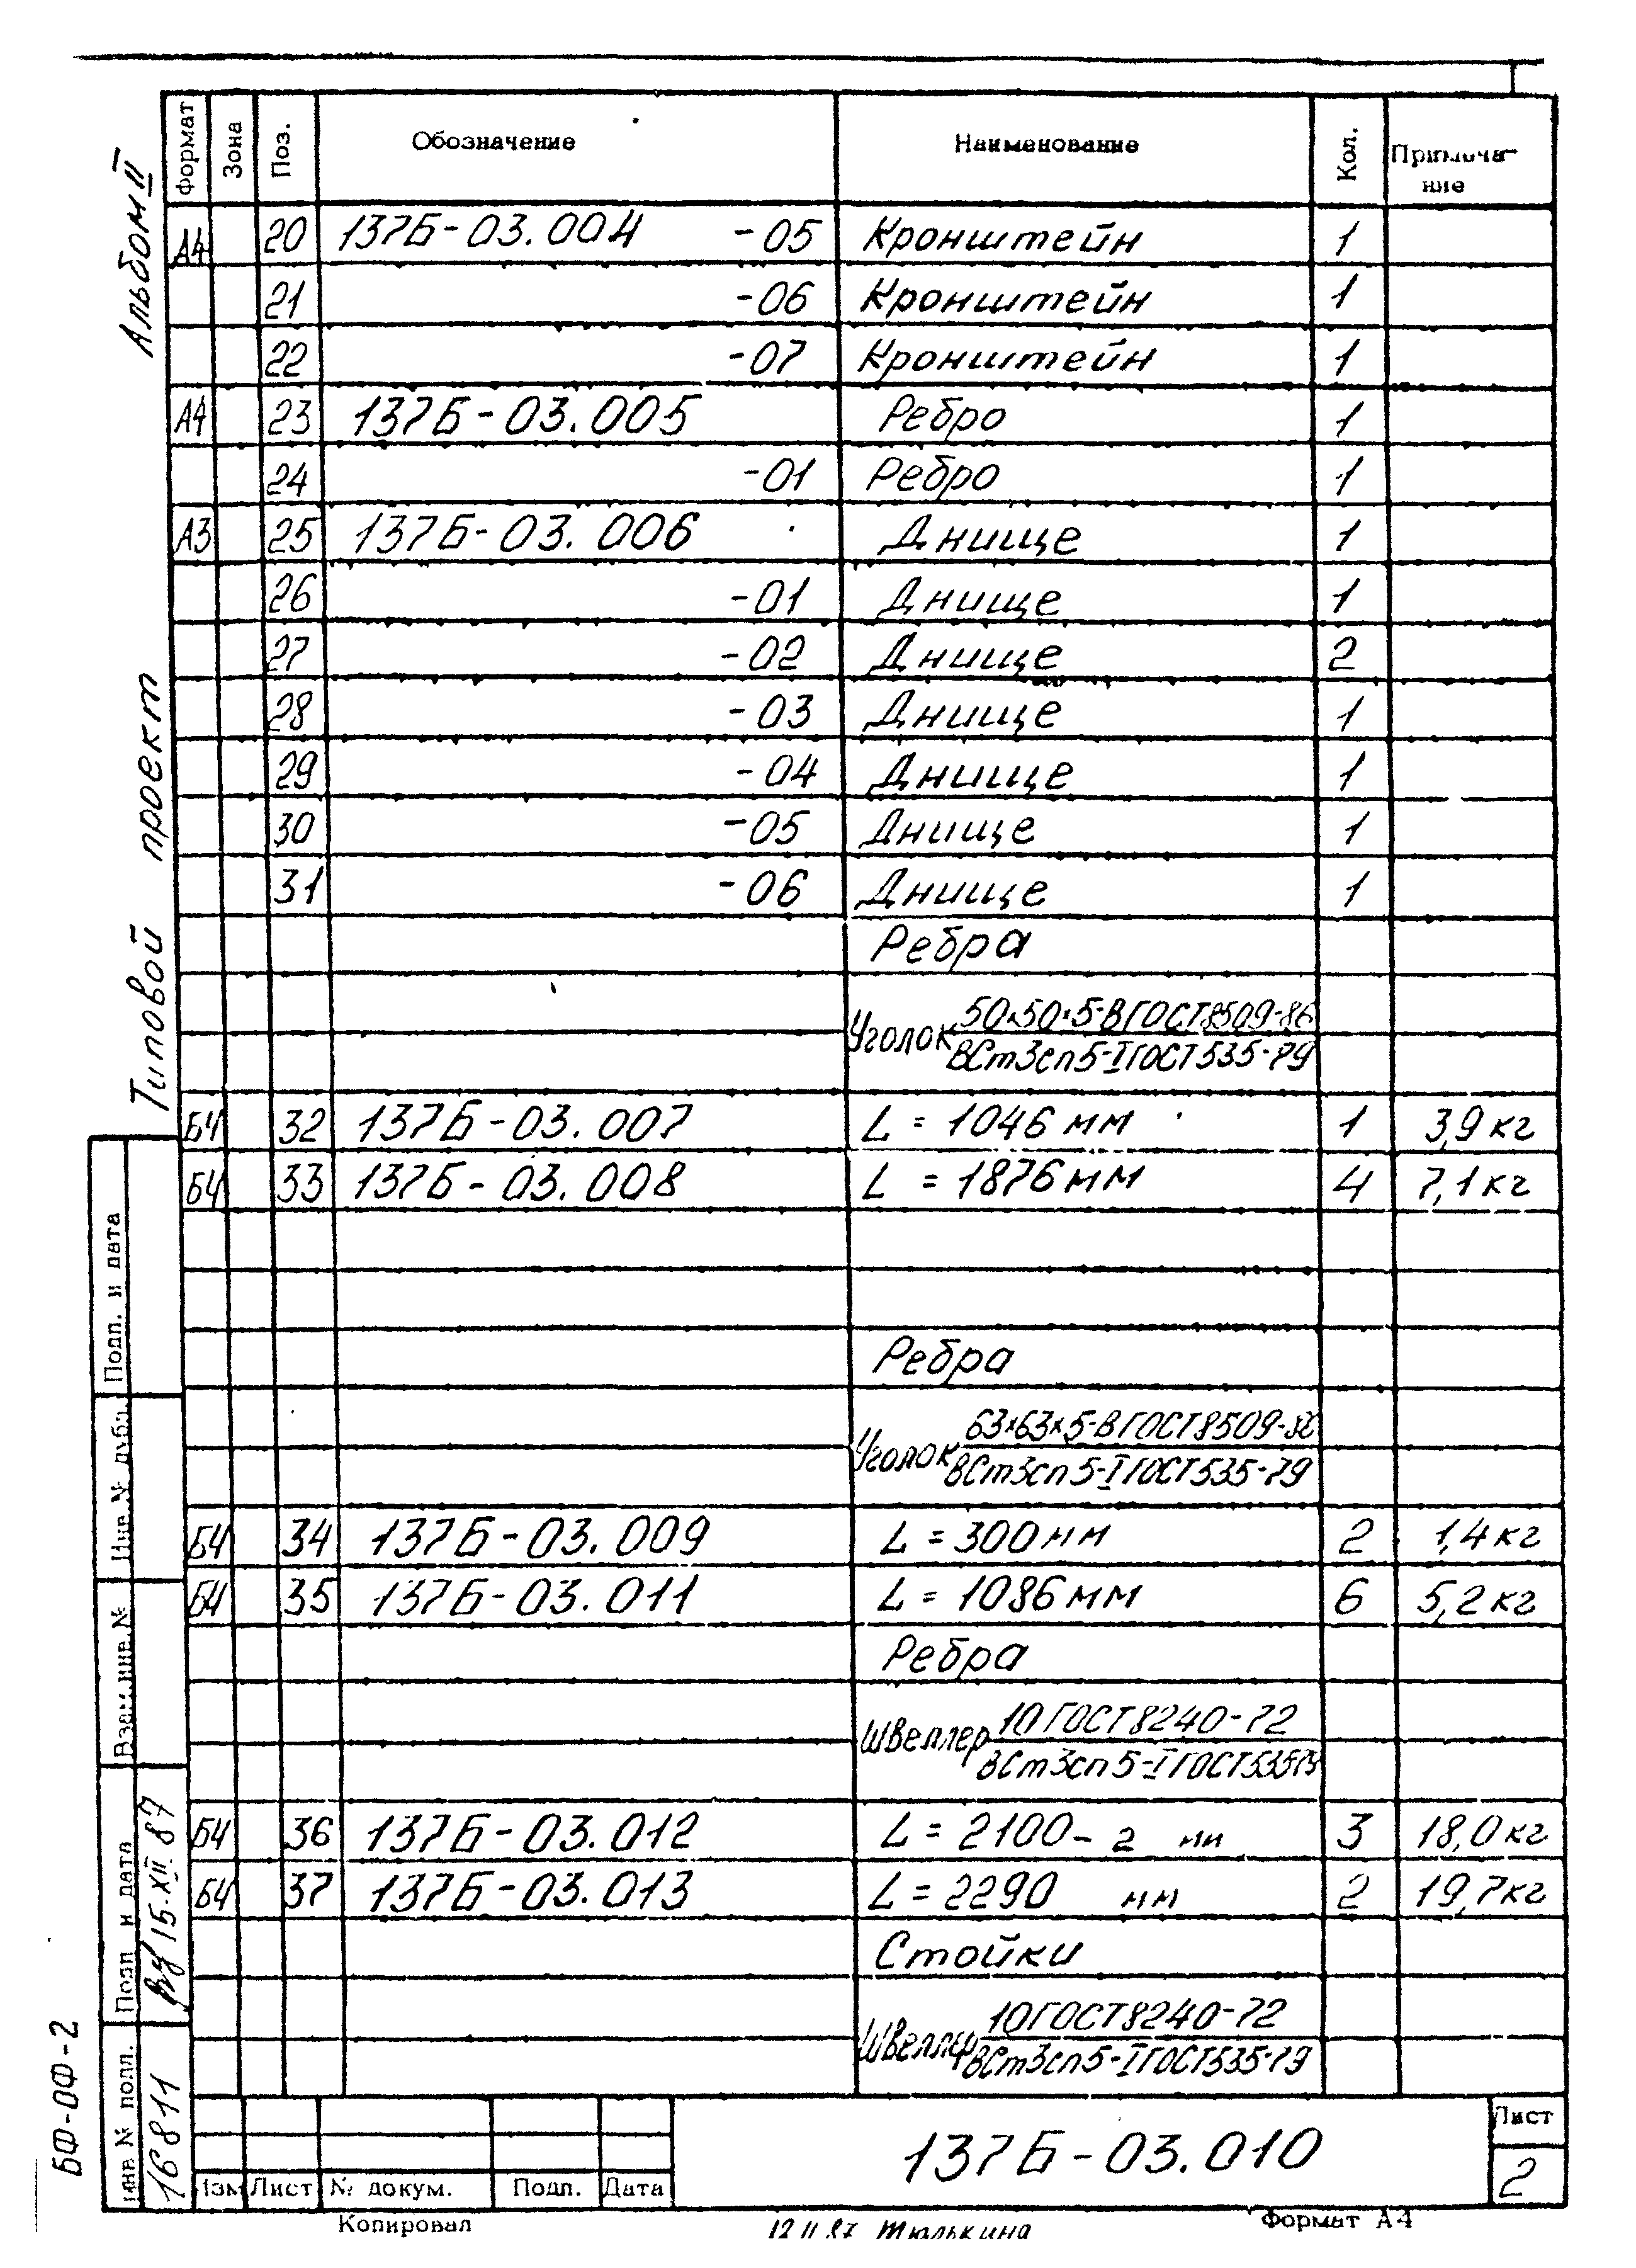 Альбом II
Типовой проект
Формат Зона Поз. Обозначение Наименование Кол. Примеча-
ние
А4 20 137Б-03.004 -05 Кронштейн 1
21 -06 Кронштейн 1
22 -07 Кронштейн 1
А4 23 137Б-03.005 Ребро 1
24 -01 Ребро 1
А3 25 137Б-03.006 Днище 1
26 -01 Днище 1
27 -02 Днище 2
28 -03 Днище 1
29 -04 Днище 1
30 -05 Днище 1
31 -06 Днище 1
Ребра
50×50×5-В ГОСТ 8509-86
Уголок
ВСт3сп5-I ГОСТ 535-79
БЧ 32 137Б-03.007 L = 1046 мм 1 3,9 кг
БЧ 33 137Б-03.008 L = 1876 мм 4 7,1 кг
Ребра
63×63×5-В ГОСТ 8509-86
Уголок
ВСт3сп5-I ГОСТ 535-79
БЧ 34 137Б-03.009 L = 300 мм 2 1,4 кг
БЧ 35 137Б-03.011 L = 1086 мм 6 5,2 кг
Ребра
10 ГОСТ 8240-72
Швеллер
ВСт3сп5-I ГОСТ 535-79
БЧ 36 137Б-03.012 L = 2100-2 мм 3 18,0 кг
БЧ 37 137Б-03.013 L = 2290 мм 2 19,7 кг
Стойки
10 ГОСТ 8240-72
Швеллер
ВСт3сп5-I ГОСТ 535-79
Подп. и дата
Инв. № дубл.
Взам. инв. №
Подп. и дата
15.XII.87
Инв. № подл.
16811
БФ-ОФ-2
Изм Лист № докум. Подп. Дата
137Б-03.010
Лист
2
Копировал
12 11 87 Тюлькина
Формат А4